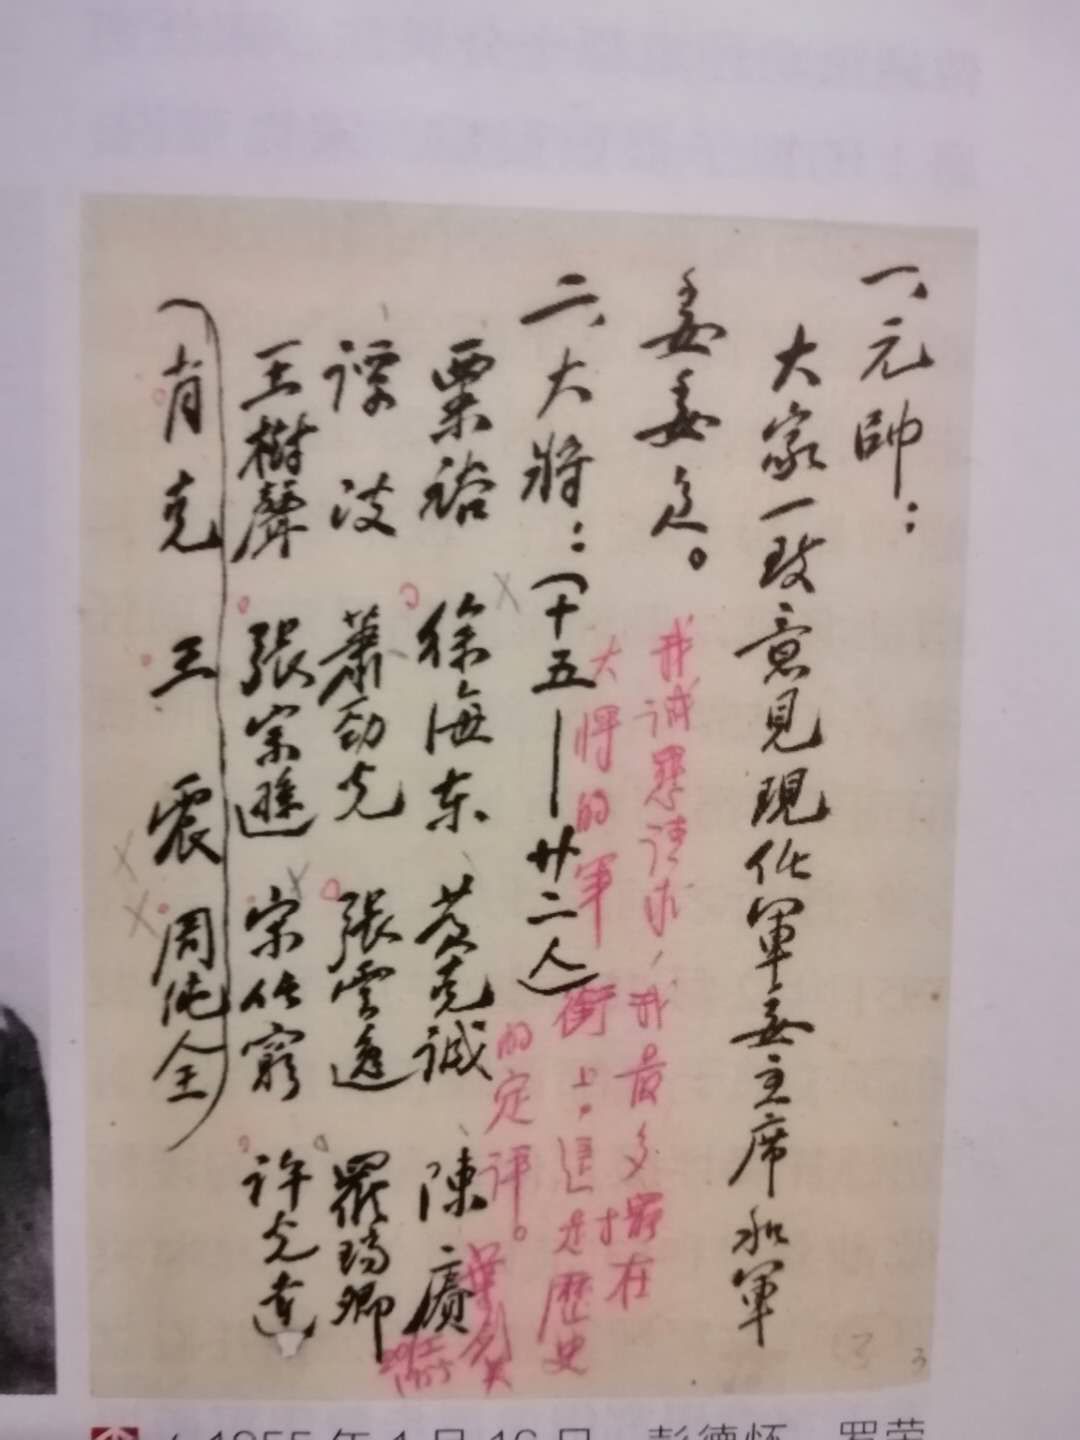 一、元帥：
大家一致意見現任軍委主席和軍
委委員。
二、大將：（十五—廿二人）
粟裕 徐海东 黄克诚 陳賡
谭政 蕭劲光 張雲逸 羅瑞卿
王樹聲 張宗遜 宋任窮 许光達
（肖克 王震 周纯全）
我诚恳请求，我最多摆在
大将的軍衔上。這才是歷史
的定评。
葉剑英
1955年1月16日 彭德怀 罗荣